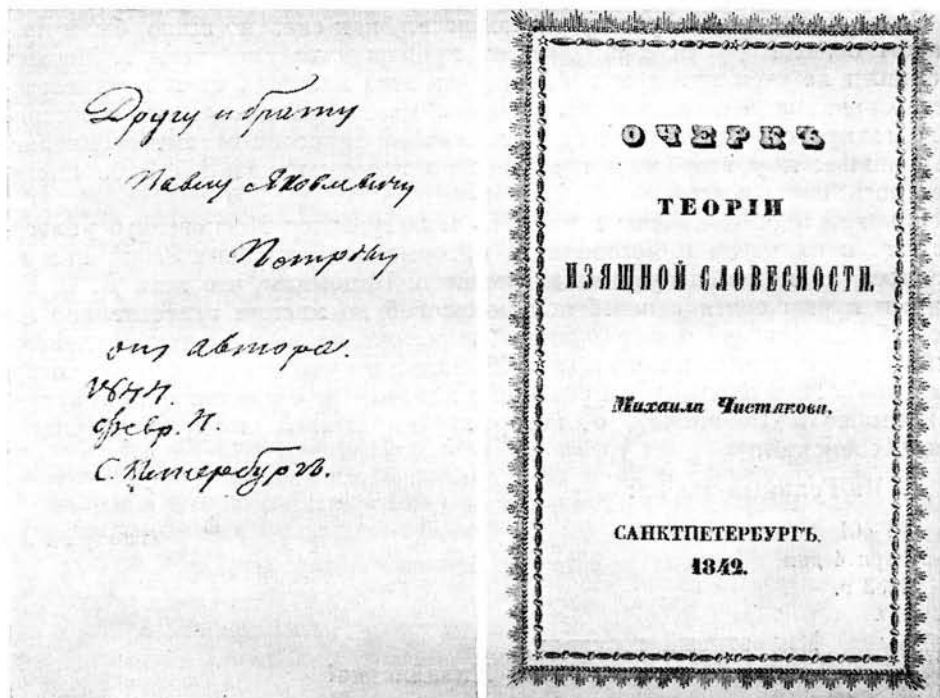 Другу и брату
Павлу Яковлевичу
Петрову
отъ автора.
1844.
февр. 4.
С. Петербургъ.
ОЧЕРКЪ
ТЕОРІИ
ИЗЯЩНОЙ СЛОВЕСНОСТИ.
Михаила Чистякова.
САНКТПЕТЕРБУРГЪ.
1842.